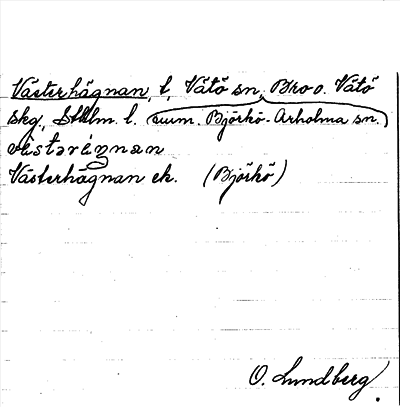 Västerhägnan, t, Vätö sn, Bro o. Vätö
skg., Sthlm. l. (numm. Björkö-Arholma sn.)
västəräŋnan
Västerhägnan ek. (Björkö)
O. Lundberg.